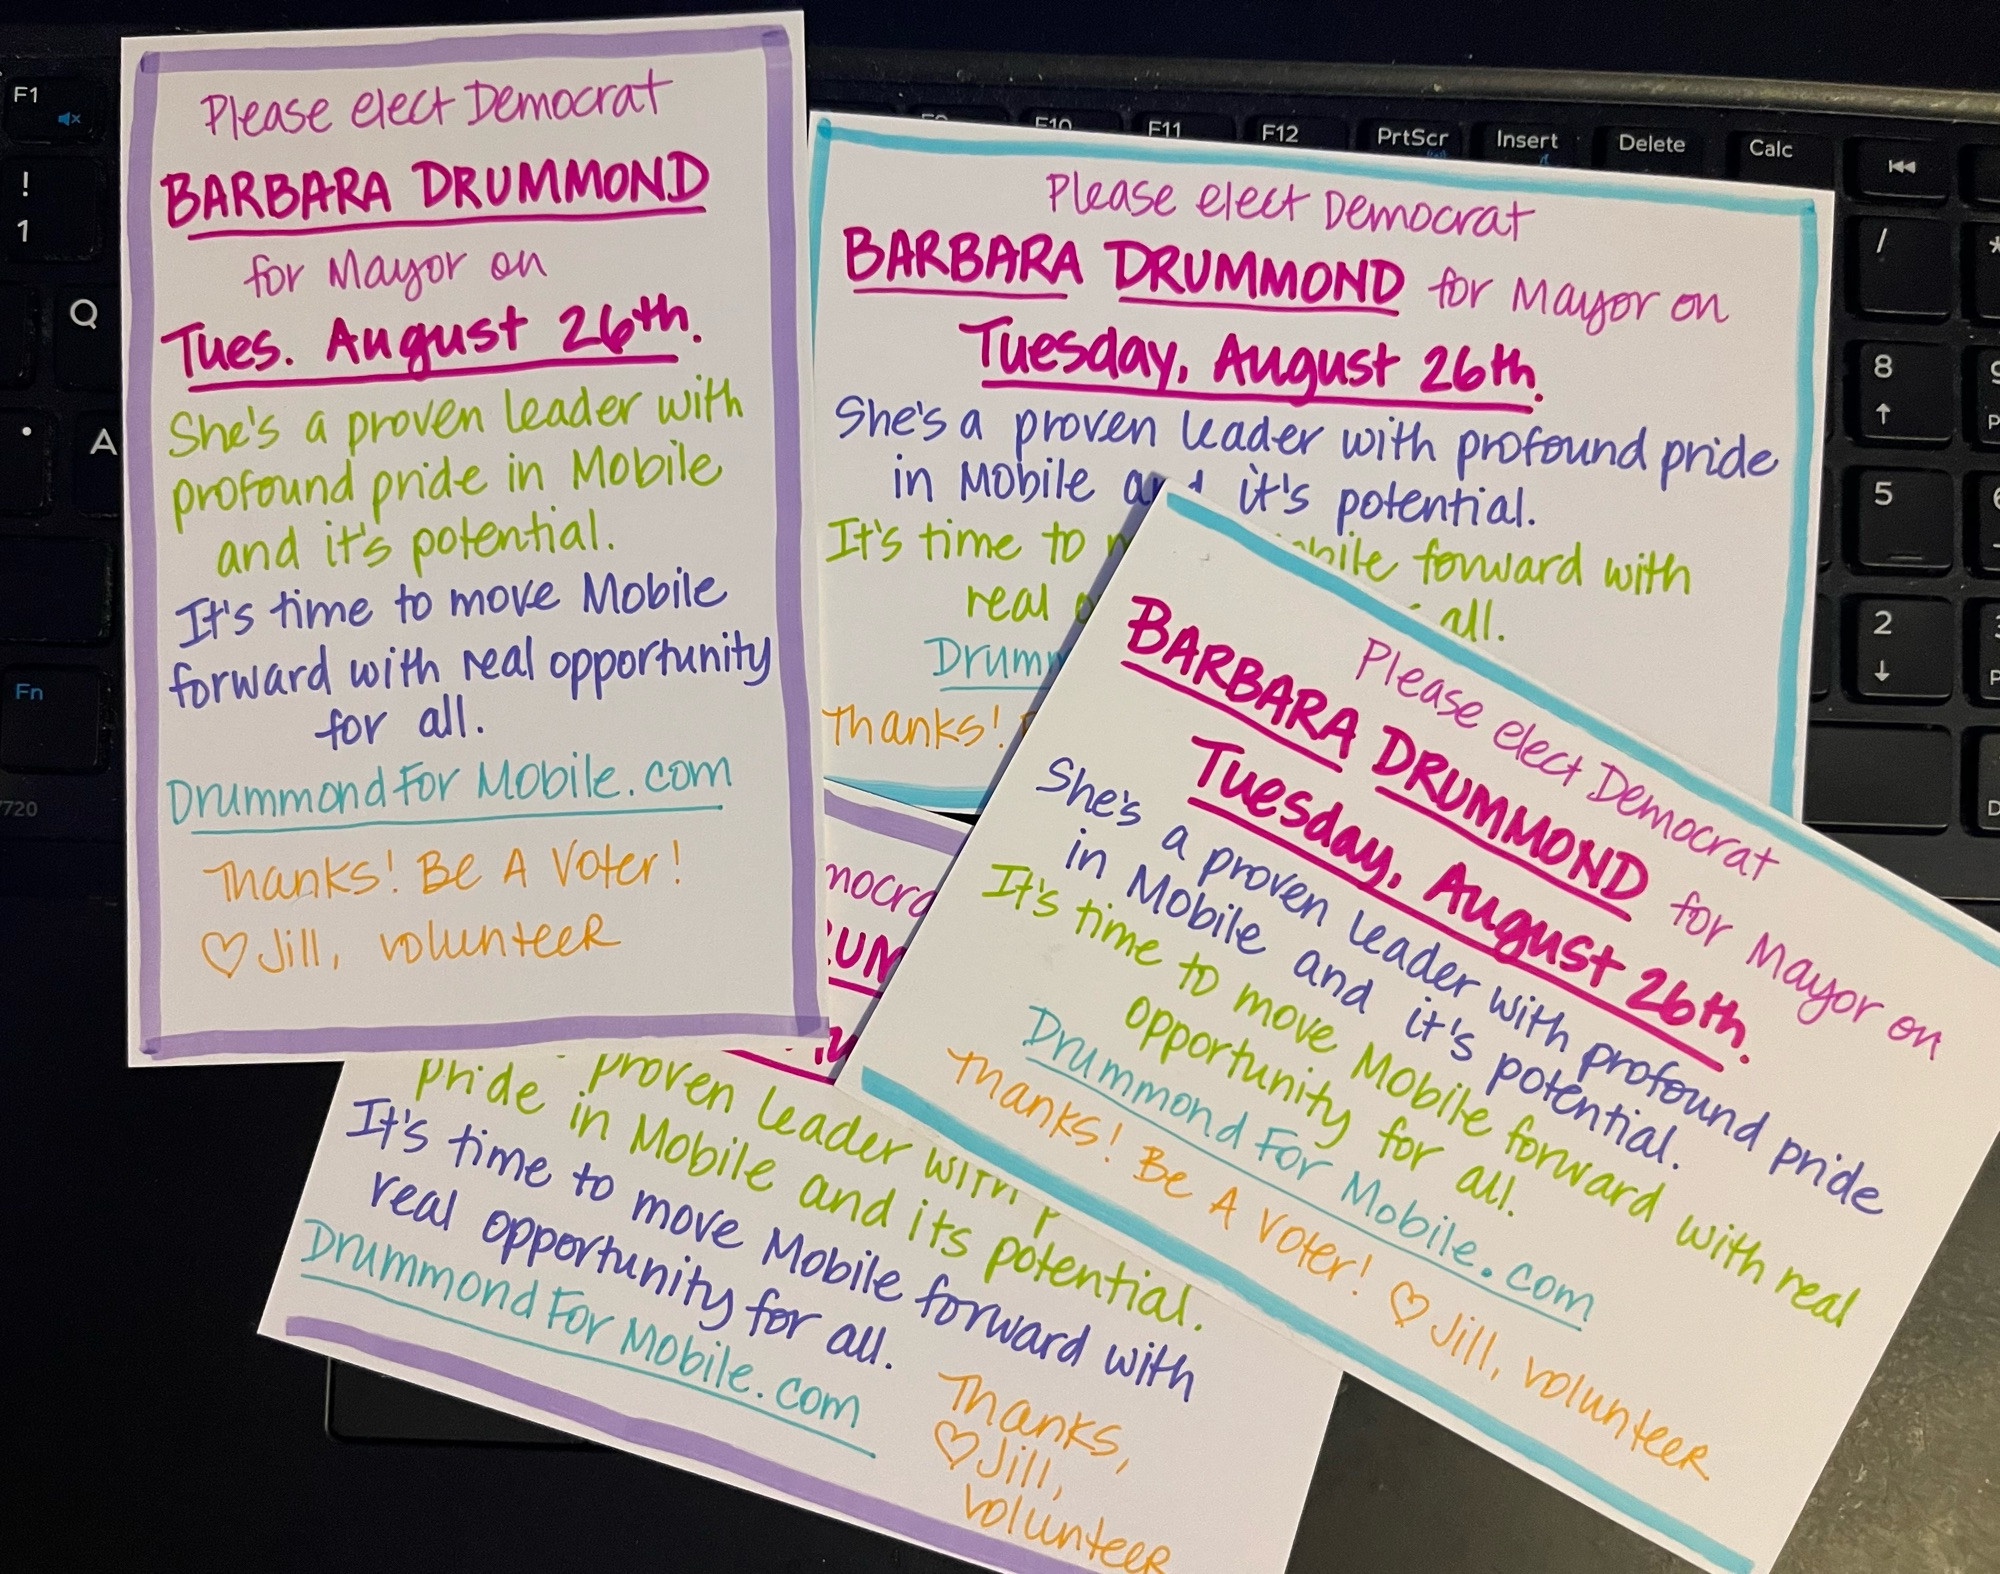 Please elect Democrat
BARBARA DRUMMOND
for Mayor on
Tues. August 26th.
She's a proven leader with
profound pride in Mobile
and it's potential.
It's time to move Mobile
forward with real opportunity
for all.
DrummondForMobile.com
Thanks! Be A Voter!
♡Jill, volunteer
Please elect Democrat
BARBARA DRUMMOND for Mayor on
Tuesday, August 26th.
She's a proven leader with profound pride
in Mobile it's potential.
It's time to forward with
real all.
Thanks!
Please elect Democrat
BARBARA DRUMMOND for Mayor on
Tuesday, August 26th.
She's a proven leader with profound pride
in Mobile and it's potential.
It's time to move Mobile forward with real
opportunity for all.
DrummondForMobile.com
Thanks! Be A Voter! ♡Jill, volunteer
proven leader with
pride in Mobile and its potential.
It's time to move Mobile forward with
real opportunity for all.
DrummondForMobile.com
Thanks,
♡Jill,
volunteer
F1
!
1
Q
A
Fn
7720
F10 F11 F12 PrtScr Insert Delete Calc
/ *
8
5
2